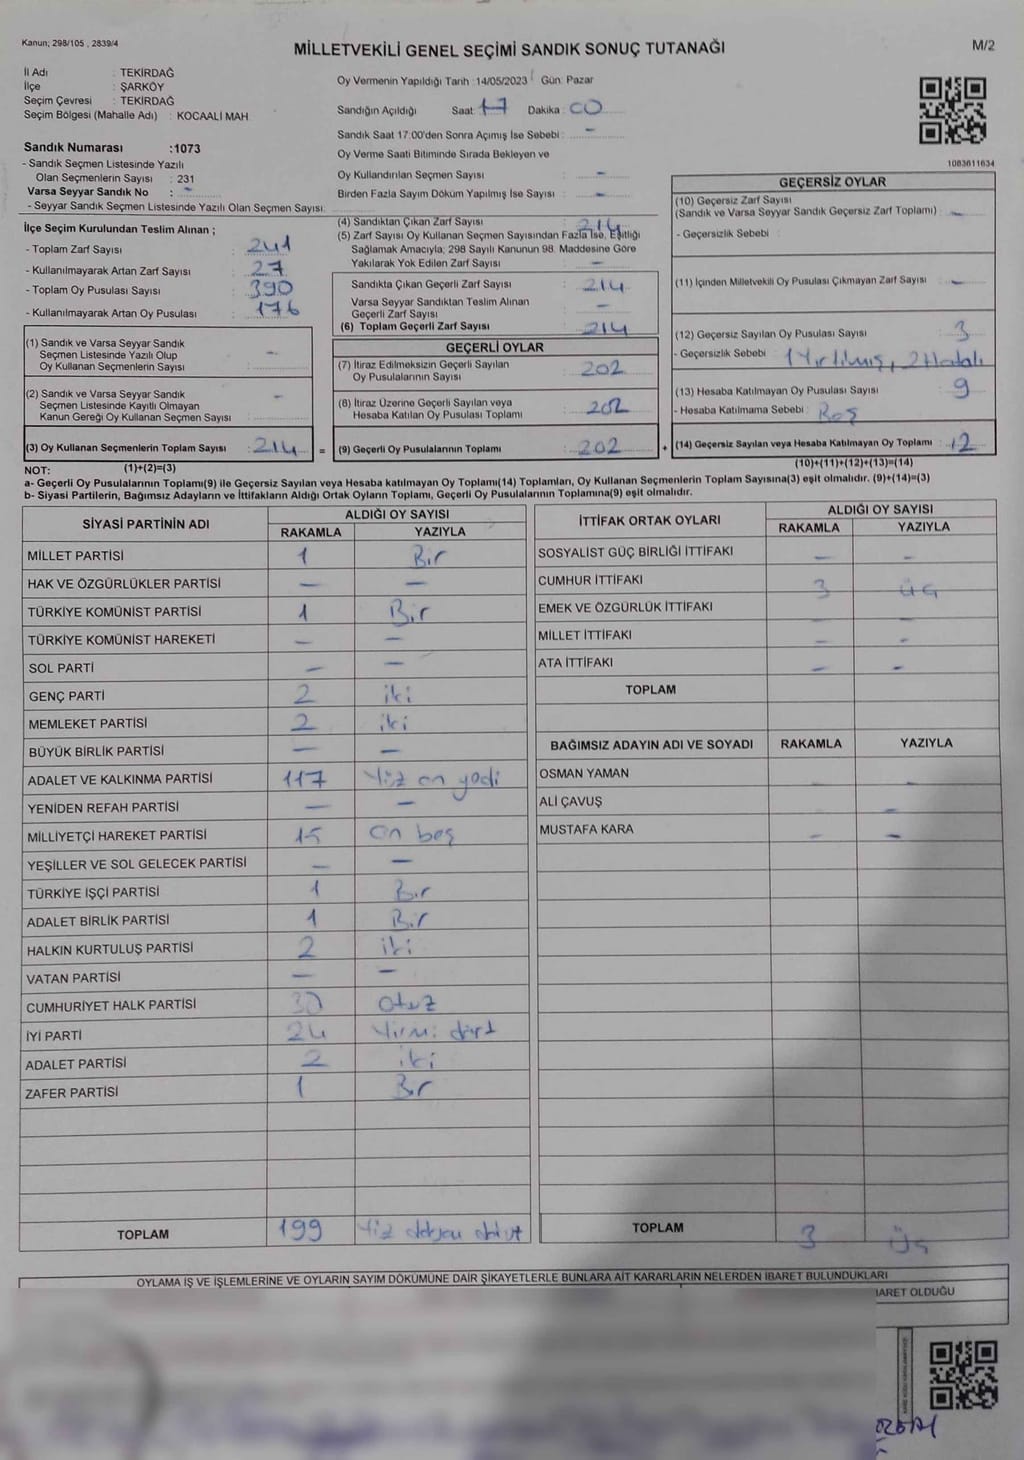 Kanun; 298/105 , 2839/4
MİLLETVEKİLİ GENEL SEÇİMİ SANDIK SONUÇ TUTANAĞI
M/2
İl Adı : TEKİRDAĞ
İlçe : ŞARKÖY
Seçim Çevresi : TEKİRDAĞ
Seçim Bölgesi (Mahalle Adı) : KOCAALİ MAH
Sandık Numarası :1073
- Sandık Seçmen Listesinde Yazılı
Olan Seçmenlerin Sayısı : 231
Varsa Seyyar Sandık No : -
- Seyyar Sandık Seçmen Listesinde Yazılı Olan Seçmen Sayısı:
Oy Vermenin Yapıldığı Tarih :14/05/2023 Gün: Pazar
Sandığın Açıldığı Saat: 17 Dakika : 00
Sandık Saat 17:00'den Sonra Açımış İse Sebebi : -
Oy Verme Saati Bitiminde Sırada Bekleyen ve
Oy Kullandırılan Seçmen Sayısı : -
Birden Fazla Sayım Döküm Yapılmış İse Sayısı : -
1083611634
İlçe Seçim Kurulundan Teslim Alınan ;
- Toplam Zarf Sayısı : 241
- Kullanılmayarak Artan Zarf Sayısı : 27
- Toplam Oy Pusulası Sayısı : 390
- Kullanılmayarak Artan Oy Pusulası : 176
(1) Sandık ve Varsa Seyyar Sandık
Seçmen Listesinde Yazılı Olup
Oy Kullanan Seçmenlerin Sayısı : -
(2) Sandık ve Varsa Seyyar Sandık
Seçmen Listesinde Kayıtlı Olmayan
Kanun Gereği Oy Kullanan Seçmen Sayısı : -
(3) Oy Kullanan Seçmenlerin Toplam Sayısı : 214
(4) Sandıktan Çıkan Zarf Sayısı : 214
(5) Zarf Sayısı Oy Kullanan Seçmen Sayısından Fazla İse, Eşitliği
Sağlamak Amacıyla; 298 Sayılı Kanunun 98. Maddesine Göre
Yakılarak Yok Edilen Zarf Sayısı : -
Sandıkta Çıkan Geçerli Zarf Sayısı : 214
Varsa Seyyar Sandıktan Teslim Alınan
Geçerli Zarf Sayısı : -
(6) Toplam Geçerli Zarf Sayısı : 214
GEÇERLİ OYLAR
(7) İtiraz Edilmeksizin Geçerli Sayılan
Oy Pusulalarının Sayısı : 202
(8) İtiraz Üzerine Geçerli Sayılan veya
Hesaba Katılan Oy Pusulası Toplamı : 202
= (9) Geçerli Oy Pusulalarının Toplamı : 202 +
GEÇERSİZ OYLAR
(10) Geçersiz Zarf Sayısı
(Sandık ve Varsa Seyyar Sandık Geçersiz Zarf Toplamı) : -
- Geçersizlik Sebebi :
(11) İçinden Milletvekili Oy Pusulası Çıkmayan Zarf Sayısı : -
(12) Geçersiz Sayılan Oy Pusulası Sayısı : 3
- Geçersizlik Sebebi : 1 Yırtılmış, 2 Hatalı
(13) Hesaba Katılmayan Oy Pusulası Sayısı : 9
- Hesaba Katılmama Sebebi : Boş
(14) Geçersiz Sayılan veya Hesaba Katılmayan Oy Toplamı : 12
NOT: (1)+(2)=(3)
(10)+(11)+(12)+(13)=(14)
a- Geçerli Oy Pusulalarının Toplamı(9) ile Geçersiz Sayılan veya Hesaba katılmayan Oy Toplamı(14) Toplamları, Oy Kullanan Seçmenlerin Toplam Sayısına(3) eşit olmalıdır. (9)+(14)=(3)
b- Siyasi Partilerin, Bağımsız Adayların ve İttifakların Aldığı Ortak Oyların Toplamı, Geçerli Oy Pusulalarının Toplamına(9) eşit olmalıdır.
SİYASİ PARTİNİN ADI
ALDIĞI OY SAYISI
RAKAMLA YAZIYLA
MİLLET PARTİSİ 1 Bir
HAK VE ÖZGÜRLÜKLER PARTİSİ - -
TÜRKİYE KOMÜNİST PARTİSİ 1 Bir
TÜRKİYE KOMÜNİST HAREKETİ - -
SOL PARTİ - -
GENÇ PARTİ 2 iki
MEMLEKET PARTİSİ 2 iki
BÜYÜK BİRLİK PARTİSİ - -
ADALET VE KALKINMA PARTİSİ 117 Yüz on yedi
YENİDEN REFAH PARTİSİ - -
MİLLİYETÇİ HAREKET PARTİSİ 15 on beş
YEŞİLLER VE SOL GELECEK PARTİSİ - -
TÜRKİYE İŞÇİ PARTİSİ 1 Bir
ADALET BİRLİK PARTİSİ 1 Bir
HALKIN KURTULUŞ PARTİSİ 2 iki
VATAN PARTİSİ - -
CUMHURİYET HALK PARTİSİ 30 otuz
İYİ PARTİ 24 Yirmi dört
ADALET PARTİSİ 2 iki
ZAFER PARTİSİ 1 Bir
TOPLAM 199 Yüz doksan dokuz
İTTİFAK ORTAK OYLARI
ALDIĞI OY SAYISI
RAKAMLA YAZIYLA
SOSYALIST GÜÇ BİRLİĞİ İTTİFAKI - -
CUMHUR İTTİFAKI 3 üç
EMEK VE ÖZGÜRLÜK İTTİFAKI - -
MİLLET İTTİFAKI - -
ATA İTTİFAKI - -
TOPLAM
BAĞIMSIZ ADAYIN ADI VE SOYADI RAKAMLA YAZIYLA
OSMAN YAMAN - -
ALİ ÇAVUŞ -
MUSTAFA KARA - -
TOPLAM 3 Üç
OYLAMA İŞ VE İŞLEMLERİNE VE OYLARIN SAYIM DÖKÜMÜNE DAİR ŞİKAYETLERLE BUNLARA AİT KARARLARIN NELERDEN İBARET BULUNDUKLARI
İBARET OLDUĞU